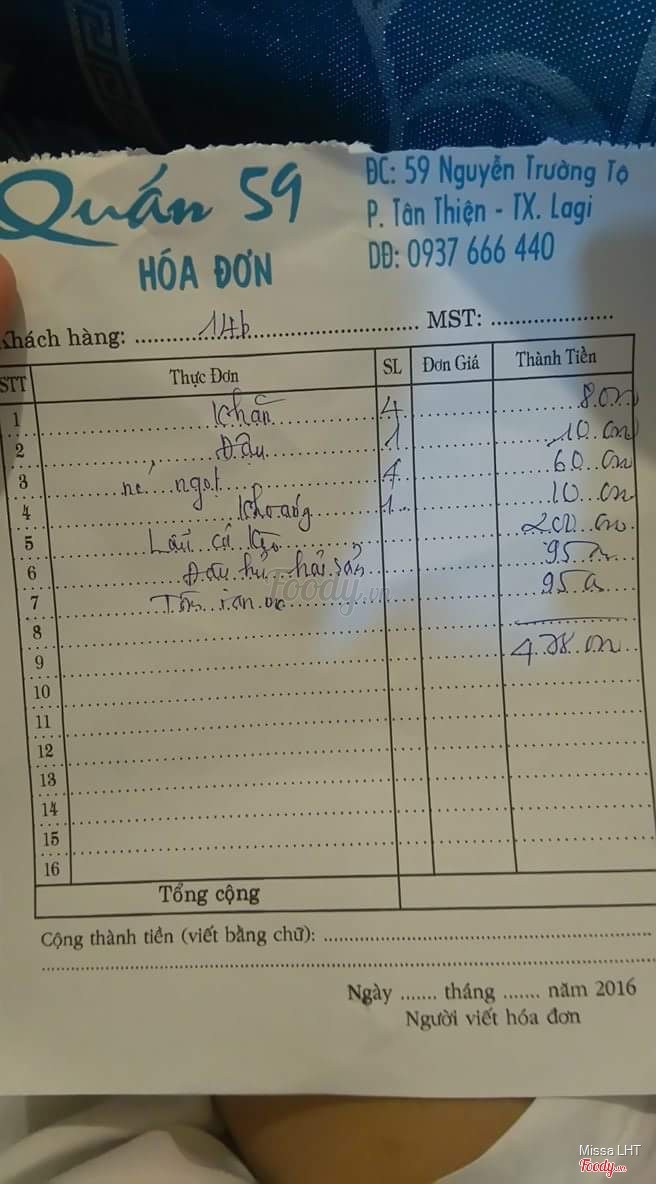 Quán 59
HÓA ĐƠN
ĐC: 59 Nguyễn Trường Tộ
P. Tân Thiện - TX. Lagi
DĐ: 0937 666 440
Khách hàng: 14b MST:
STT Thực Đơn SL Đơn Giá Thành Tiền
1 Khăn 4 8.
2 Đậu 1 10
3 ngọt 4 60
4 Khoáng 1 10
5 Lẩu cá 200
6 Đậu hủ hải sản 95
7 95
8
9 478
10
11
12
13
14
15
16
Tổng cộng
Cộng thành tiền (viết bằng chữ):
Ngày ....... tháng ....... năm 2016
Người viết hóa đơn
Foody.vn
Missa LHT
Foody.vn